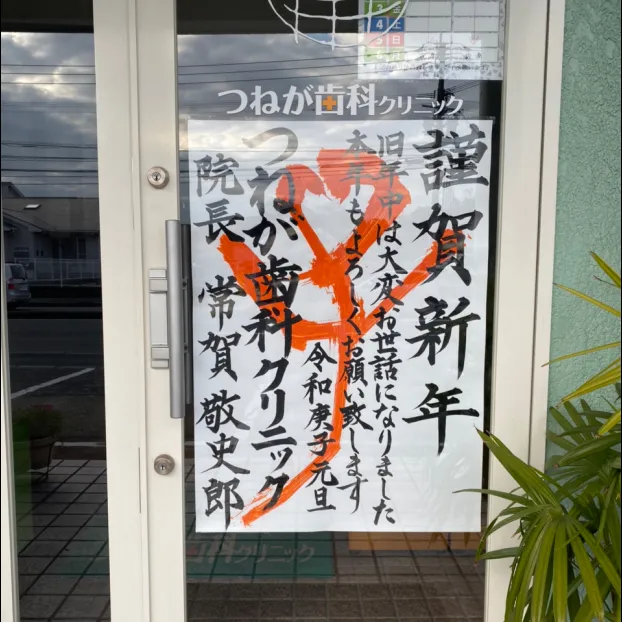 つねが歯科クリニック
謹賀新年
旧年中は大変お世話になりました
本年もよろしくお願い致します
令和庚子元旦
つねが歯科クリニック
院長 常賀敬史郎